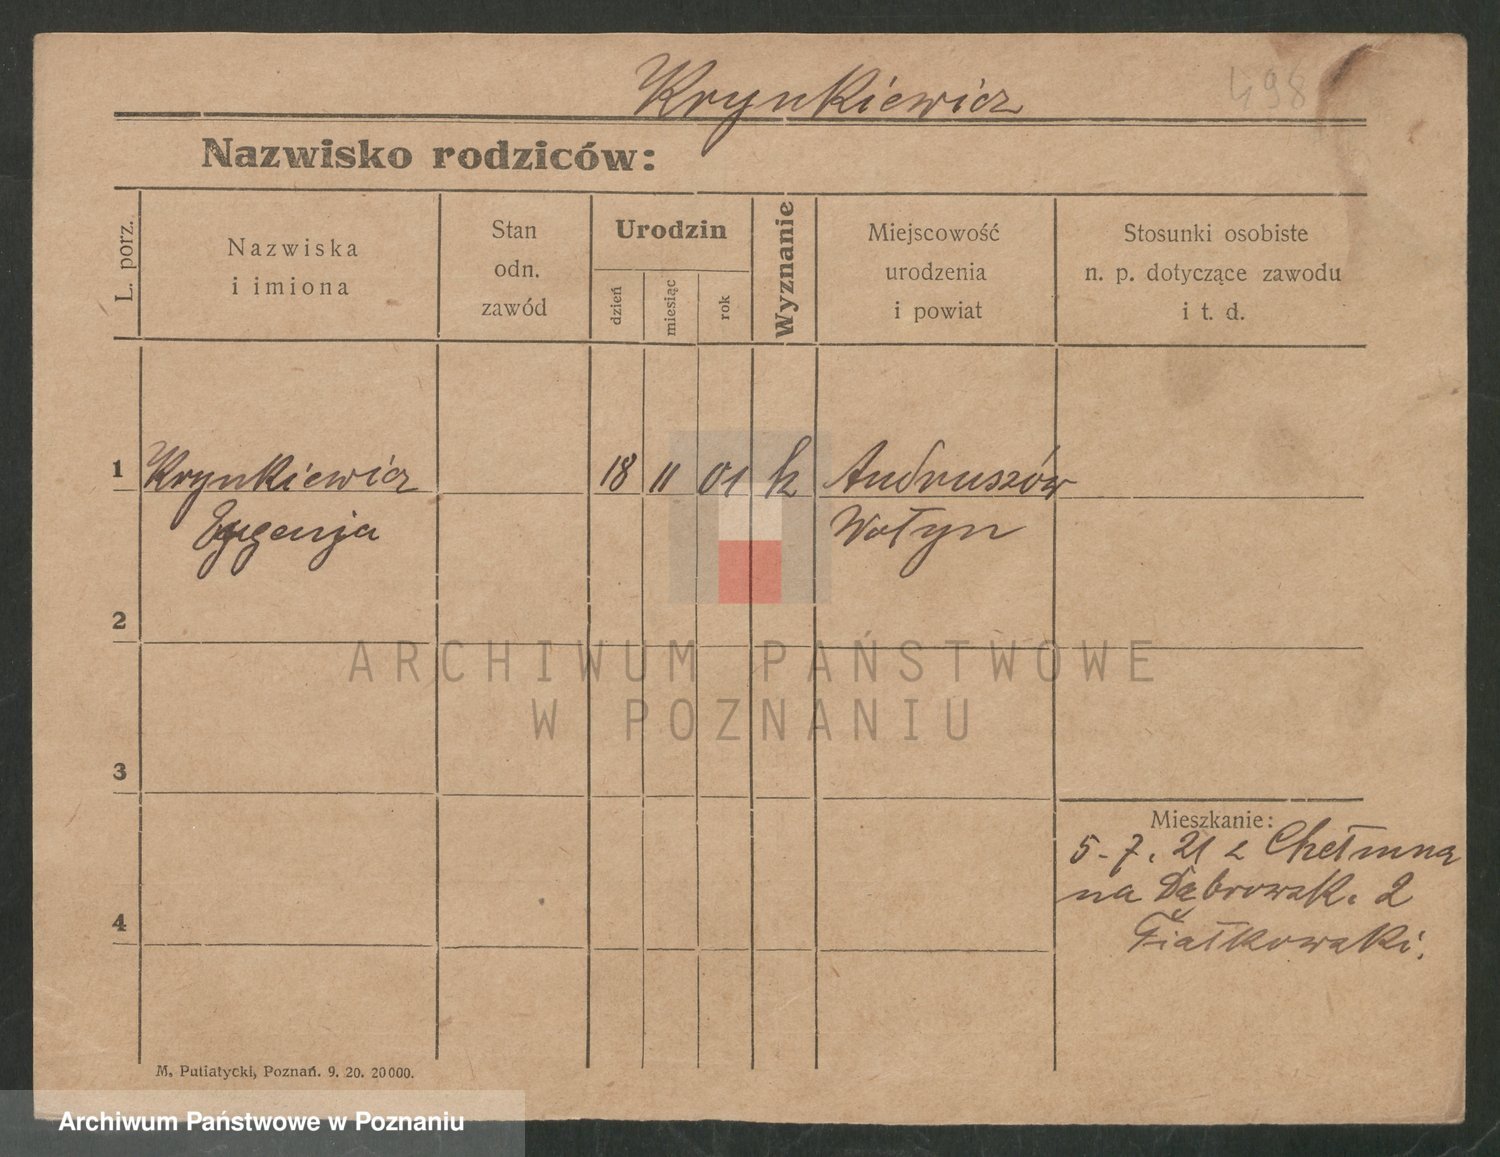 Krynkiewicz
498
Nazwisko rodziców:
L. porz.
Nazwiska
i imiona
Stan
odn.
zawód
Urodzin
dzień
miesiąc
rok
Wyznanie
Miejscowość
urodzenia
i powiat
Stosunki osobiste
n. p. dotyczące zawodu
i t. d.
1
Krynkiewicz
18
11
01
k
Andruszów
Eugenja
Wołyn
2
ARCHIWUM PAŃSTWOWE
W POZNANIU
3
Mieszkanie:
5-7. 21 z Chełmna
na Dąbrowsk. 2
4
Fiałkowski.
M. Putiatycki, Poznań. 9. 20. 20000.
Archiwum Państwowe w Poznaniu